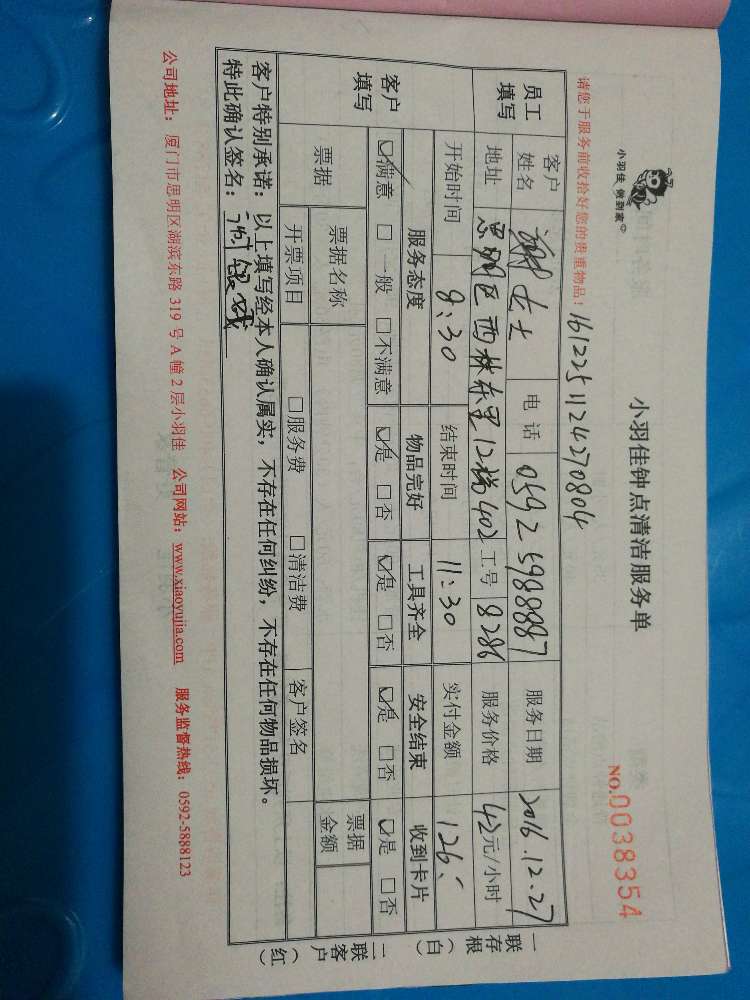 小羽佳 做到家
小羽佳钟点清洁服务单
NO.0038354
请您于服务前收拾好您的贵重物品！
1612251124270804
员工填写 客户姓名 谢女士 电话 0592 5988887 服务日期 2016.12.27
地址 思明区西林东里12梯402 工号 8286 服务价格 42元/小时
开始时间 8:30 结束时间 11:30 实付金额 126
客户填写 服务态度 物品完好 工具齐全 安全结束 收到卡片
☑满意 □一般 □不满意 ☑是 □否 ☑是 □否 ☑是 □否 ☑是 □否
票据 票据名称 票据金额
开票项目 □服务费 □清洁费 客户签名
客户特别承诺：以上填写经本人确认属实，不存在任何纠纷，不存在任何物品损坏。
特此确认签名：
公司地址：厦门市思明区湖滨东路 319 号 A 幢 2 层小羽佳 公司网站：www.xiaoyujia.com 服务监督热线：0592-5888123
一联存根（白）
二联客户（红）